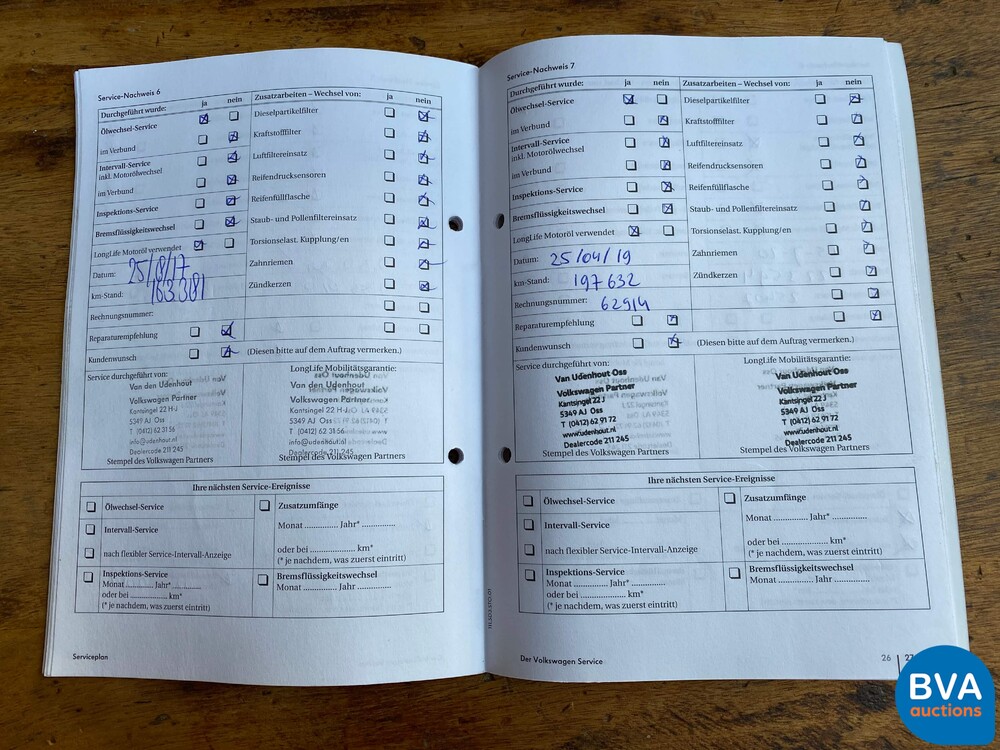 Service-Nachweis 6
Durchgeführt wurde: ja nein Zusatzarbeiten – Wechsel von: ja nein
Ölwechsel-Service Dieselpartikelfilter
im Verbund Kraftstofffilter
Intervall-Service
inkl. Motorölwechsel Luftfiltereinsatz
im Verbund Reifendrucksensoren
Inspektions-Service Reifenfüllflasche
Bremsflüssigkeitswechsel Staub- und Pollenfiltereinsatz
LongLife Motoröl verwendet Torsionselast. Kupplung/en
Datum: 25/8/17 Zahnriemen
km-Stand: 163.381 Zündkerzen
Rechnungsnummer:
Reparaturempfehlung
Kundenwunsch (Diesen bitte auf dem Auftrag vermerken.)
Service durchgeführt von: LongLife Mobilitätsgarantie:
Van den Udenhout Van den Udenhout
Volkswagen Partner Volkswagen Partner
Kantsingel 22 H-J Kantsingel 22
5349 AJ Oss 5349 AJ Oss
T (0412) 62 31 56 T (0412) 62 31 56
info@udenhout.nl info@udenhout.nl
Dealercode 211 245 Dealercode 211 245
Stempel des Volkswagen Partners Stempel des Volkswagen Partners
Ihre nächsten Service-Ereignisse
Ölwechsel-Service Zusatzumfänge
Intervall-Service Monat ............. Jahr* .............
nach flexibler Service-Intervall-Anzeige oder bei ............. km*
(* je nachdem, was zuerst eintritt)
Inspektions-Service Bremsflüssigkeitswechsel
Monat ........... Jahr* ........... Monat ........... Jahr ...........
oder bei ............. km*
(* je nachdem, was zuerst eintritt)
Serviceplan
Service-Nachweis 7
Durchgeführt wurde: ja nein Zusatzarbeiten – Wechsel von: ja nein
Ölwechsel-Service Dieselpartikelfilter
im Verbund Kraftstofffilter
Intervall-Service
inkl. Motorölwechsel Luftfiltereinsatz
im Verbund Reifendrucksensoren
Inspektions-Service Reifenfüllflasche
Bremsflüssigkeitswechsel Staub- und Pollenfiltereinsatz
LongLife Motoröl verwendet Torsionselast. Kupplung/en
Datum: 25/04/19 Zahnriemen
km-Stand: 197 632 Zündkerzen
Rechnungsnummer: 62914
Reparaturempfehlung
Kundenwunsch (Diesen bitte auf dem Auftrag vermerken.)
Service durchgeführt von: LongLife Mobilitätsgarantie:
Van Udenhout Oss Van Udenhout Oss
Volkswagen Partner Volkswagen Partner
Kantsingel 22 J Kantsingel 22 J
5349 AJ Oss 5349 AJ Oss
T (0412) 62 91 72 T (0412) 62 91 72
www.udenhout.nl www.udenhout.nl
Dealercode 211 245 Dealercode 211 245
Stempel des Volkswagen Partners Stempel des Volkswagen Partners
Ihre nächsten Service-Ereignisse
Ölwechsel-Service Zusatzumfänge
Intervall-Service Monat ............. Jahr* .............
nach flexibler Service-Intervall-Anzeige oder bei ............. km*
(* je nachdem, was zuerst eintritt)
Inspektions-Service Bremsflüssigkeitswechsel
Monat ........... Jahr* ........... Monat ........... Jahr ...........
oder bei ............. km*
(* je nachdem, was zuerst eintritt)
Der Volkswagen Service 26
BVA
auctions